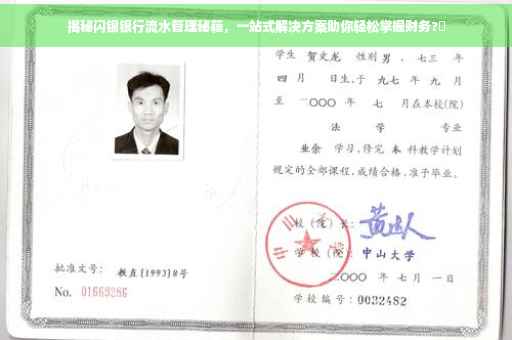 揭秘闪银银行流水管理秘籍，一站式解决方案助你轻松掌握财务?
学生 贺文龙 性别 男，七三 年
四 月 日生，于 九七 年 九 月
至 二〇〇〇 年 七 月在本校(院)
法 学 专业
业余 学习，修完 本 科教学计划
规定的全部课程，成绩合格，准予毕业。
校（院）长：
学 校（院）：中山大学
二〇〇〇 年 七 月 一 日
学校编号：0032482
批准文号：教直[1993]8号
No. 01669286